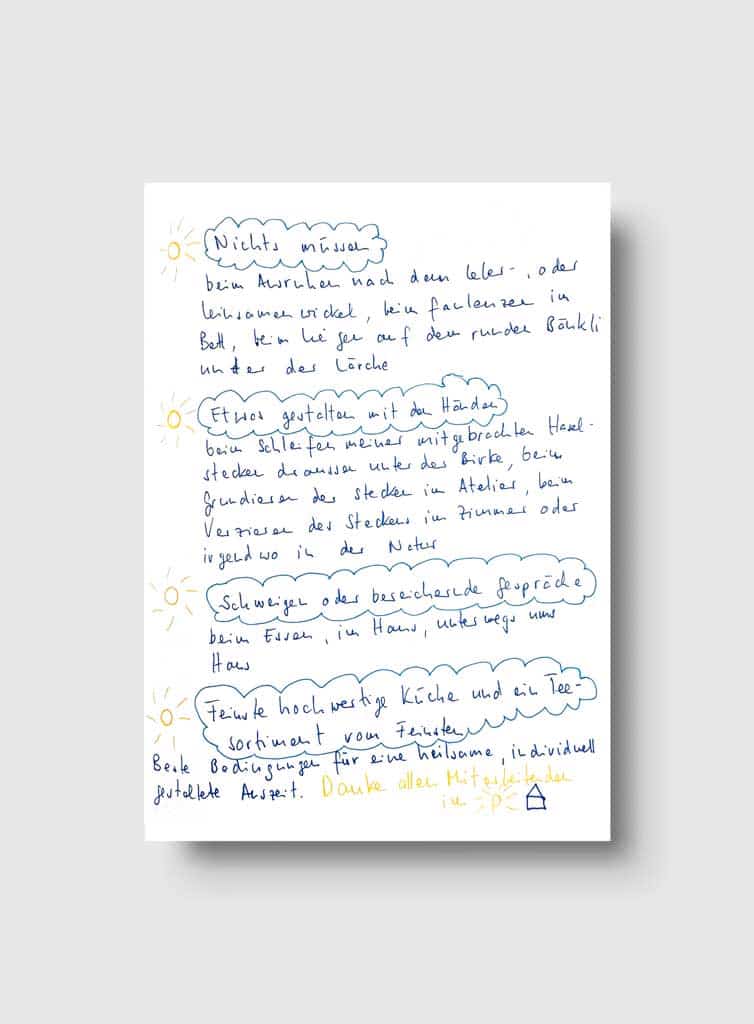 Nichts müssen
beim Ausruhen nach dem Leber-, oder
Leinsamenwickel, beim faulenzen im
Bett, beim Liegen auf dem runden Bänkli
unter der Lärche
Etwas gestalten mit den Händen
beim Schleifen meiner mitgebrachten Hasel-
stecken draussen unter der Birke, beim
Grundieren der Stecken im Atelier, beim
Verzieren des Steckens im Zimmer oder
irgendwo in der Natur
Schweigen oder bereichernde Gespräche
beim Essen, im Haus, unterwegs ums
Haus
Feinste hochwertige Küche und ein Tee-
sortiment vom Feinsten
Beste Bedingungen für eine heilsame, individuell
gestaltete Auszeit. Danke allen Mitarbeitenden
im